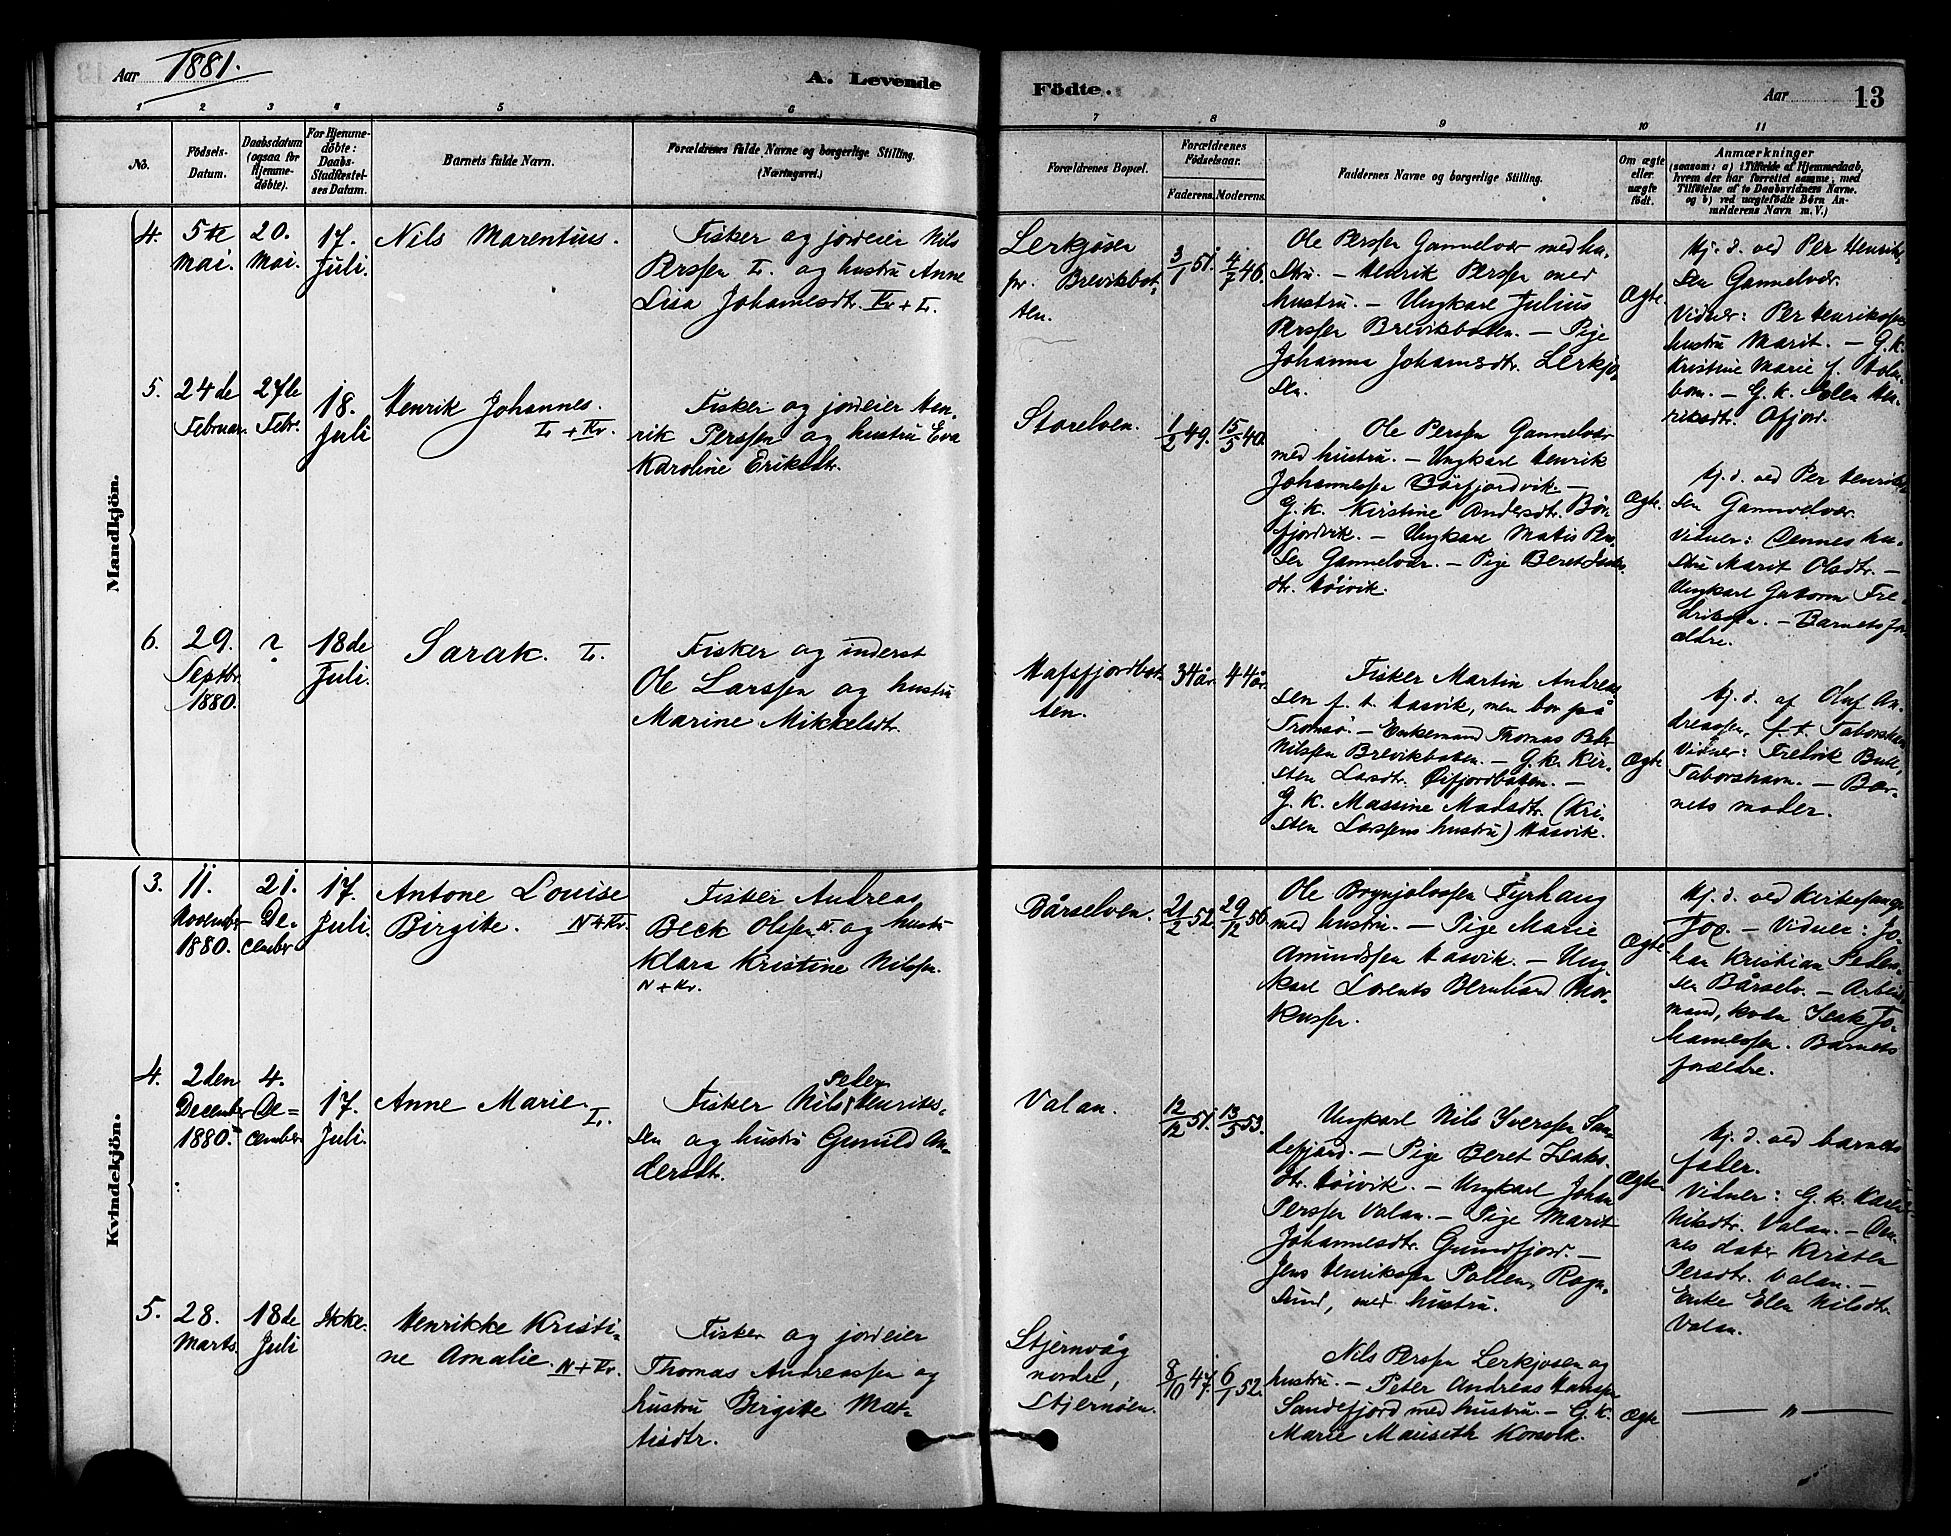 Aar 1881.
A. Levende
Födte.
Aar
13
1 2 3 4 5 6
7 8 9 10 11
No.
Födsels-
Datum.
Daabsdatum
(ogsaa for
Hjemme-
døbte).
For Hjemme-
døbte:
Daabs-
Stadfæstel-
ses Datum.
Barnets fulde Navn.
Forældrenes fulde Navne og borgerlige Stilling.
(Næringsvei.)
Forældrenes Bopæl.
Forældrenes
Födselsaar.
Faderens. Moderens.
Faddernes Navne og borgerlige Stilling.
Om ægte
eller
uægte
født.
Anmærkninger
(saasom: a) i Tilfælde af Hjemmedaab,
hvem der har forrettet samme, med
Tilføielse af to Daabsvidners Navne.
og b) ved uægtefødte Börn An-
melderens Navn m. V.)
Mandkjön.
4.
5te
Mai.
20.
Mai.
17.
Juli.
Nils Marentius.
Fisker og jordeier Nils
Perssen L. og hustru Anne
Lisa Johannesdtr. Kv + L.
Lerkjosen
pr. Brevikbot-
ten.
3/1 51.
4/7 46.
Ole Perssen Gammelvær med hu-
stru. — Henrik Perssen med
hustru. — Ungkarl Julius
Perssen Brevikbotten. — Pige
Johanna Johannesdtr. Lerkjo-
sen.
Ægte.
Hj. d. ved Per Henrik-
sen Gammelvær.
Vidner: Per Henriksens
hustru Marit. — G. k.
Kristine Marie f. Holm-
bom. — G. k. Elen Hen-
riksdtr. Ofjord.
5.
24de
Februar.
27de
Febr.
18.
Juli
Henrik Johannes.
L + Kv.
Fisker og jordeier Hen-
rik Perssen og hustru Eva
Karoline Eriksdtr.
Storelven.
1/2 49.
15/5 40.
Ole Perssen Gammelvær
med hustru. — Ungkarl Henrik
Johannessen Børfjordvik —
G. k. Kirstine Andersdtr. Bør-
fjordvik. — Ungkarl Matis Per-
sen Gammelvær. — Pige Beret Isaks-
dtr. Høivik.
Ægte.
Hj. d. ved Per Henrik-
sen Gammelvær.
Vidner: Dennes hu-
stru Marit Olsdtr. —
Ungkarl Guttorm Fre-
driksen. — Barnets for-
ældre.
6.
29.
Septbr.
1880.
?
18de
Juli.
Sarak. L.
Fisker og inderst
Ole Larssen og hustru
Marine Mikkelsdtr.
Hafsfjordbot-
ten.
34 år.
44 år.
Fisker Martin Andreas-
sen f. t. Hasvik, men bor på
Tromsø. — Enkemand Thomas Peter
Nilssen Brevikbotten. — G. k. Kir-
sten Larsdtr. Øifjordbotten. —
G. k. Massine Madsdtr. (Kri-
sten Larssens hustru) Hasvik.
Ægte
Hj. d. af Oluf An-
dreassen, f. t. Taborshavn.
Vidner: Fredrik Bull,
Taborshavn. — Bar-
nets moder.
Kvindekjön.
3.
11.
November
1880.
21.
De-
cember
17.
Juli.
Antone Louise
Birgite. N + Kv.
Fisker Andreas
Beck Olssen N. og hustru
Klara Kristine Nilssen.
N + Kv.
Bårselven.
21/2 52.
29/12 56.
Ole Brynjolvssen Fyrhaug
med hustru. — Pige Marie
Amundssen Hasvik. — Ung-
karl Lorents Bernhard Mar-
kussen.
Ægte.
Hj. d. ved Kirkesanger
Fox. — Vidner: Jo-
han Kristian Peder-
sen Bårselv. — Arbeids-
mand, kvæn Isak Jo-
hannessen. Barnets
forældre.
4.
2den
December
1880.
4.
De-
cember
17.
Juli.
Anne Marie. L.
Peder
Fisker Nils Henriks-
sen og hustru Gunild An-
dersdtr.
Valan.
12/12 51.
13/5 53.
Ungkarl Nils Iverssen San-
defjord. — Pige Beret Isaks-
dtr. Høivik. — Ungkarl Johan
Perssen Valan. — Pige Marit
Johannesdtr. Grundfjord. —
Jens Henriksen Pollen, Rogn-
sund, med hustru.
Ægte
Hj. d. ved barnets
fader.
Vidner: G. k. Karen
Nilsdtr. Valan. — Den-
nes dater Kirsten
Persdtr. Valan. —
Enke Elen Nilsdtr.
Valan.
5.
28.
Marts.
18de
Juli
Ikke.
Henrikke Kristi-
ne Amalie. N + Kv.
Fisker og jordeier
Thomas Andreassen og
hustru Birgitte Mat-
tisdtr.
Stjernvåg
nordre,
Stjernøen.
8/10 47.
6/1 52.
Nils Perssen Lerkjosen og
hustru. — Peter Andreas Hansen
Sandefjord med hustru. — G. k.
Marie Mauseth Korsvik.
Ægte
— " —